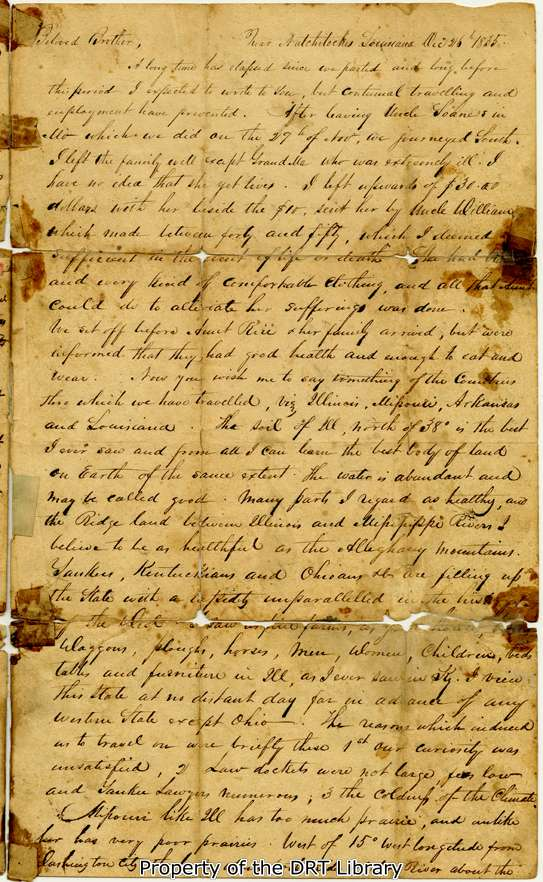 Beloved Brother, Near Natchitoches Louisiana Dec 26th 1835.
A long time has elapsed since we parted and long before
this period I expected to write to you, but continual travelling and
employment have prevented. After leaving Uncle Soane's in
Mo which we did on the 27th of Nov, we journeyed South.
I left the family well except Grand Ma who was extremely ill. I
have no idea that she yet lives. I left upwards of $30.00
dollars with her beside the $10, sent her by Uncle William
which made between forty and fifty, which I deemed
sufficient in the event of life or death. She had
and every kind of comfortable clothing, and all that
could do to aleviate her sufferings was done.
We set off before Aunt Rice & her family arrived, but were
informed that they had good health and enough to eat and
wear. Now you wish me to say something of the Countries
thro which we have travelled, viz Illinois, Missouri, Arkansas
and Louisiana. The soil of Ill, north of 38° is the best
I ever saw and from all I can learn the best body of land
on Earth of the same extent. The water is abundant and
may be called good. Many parts I regard as healthy, and
the Ridge land between Illinois and Mississippi Rivers I
believe to be as healthful as the Alleghany mountains.
Yankees, Kentuckians and Ohioans &c are filling up
the State with a rapidity unparallelled in the history
of the West. I saw as fine farms,
Waggons, ploughs, horses, Men, Women, Children, beds
tables and furniture in Ill, as I ever saw in Ky. I view
this State at no distant day far in advance of any
western State except Ohio. The reasons which induced
us to travel on were briefly these 1st our curiosity was
unsatisfied, 2 Law dockets were not large, fees low
and Yankee Lawyers numerous; 3 the coldness of the Climate.
Missouri like Ill has too much prairie, and unlike
her has very poor prairies. West of 15° west longitude from
Washington City River about the
Property of the DRT Library